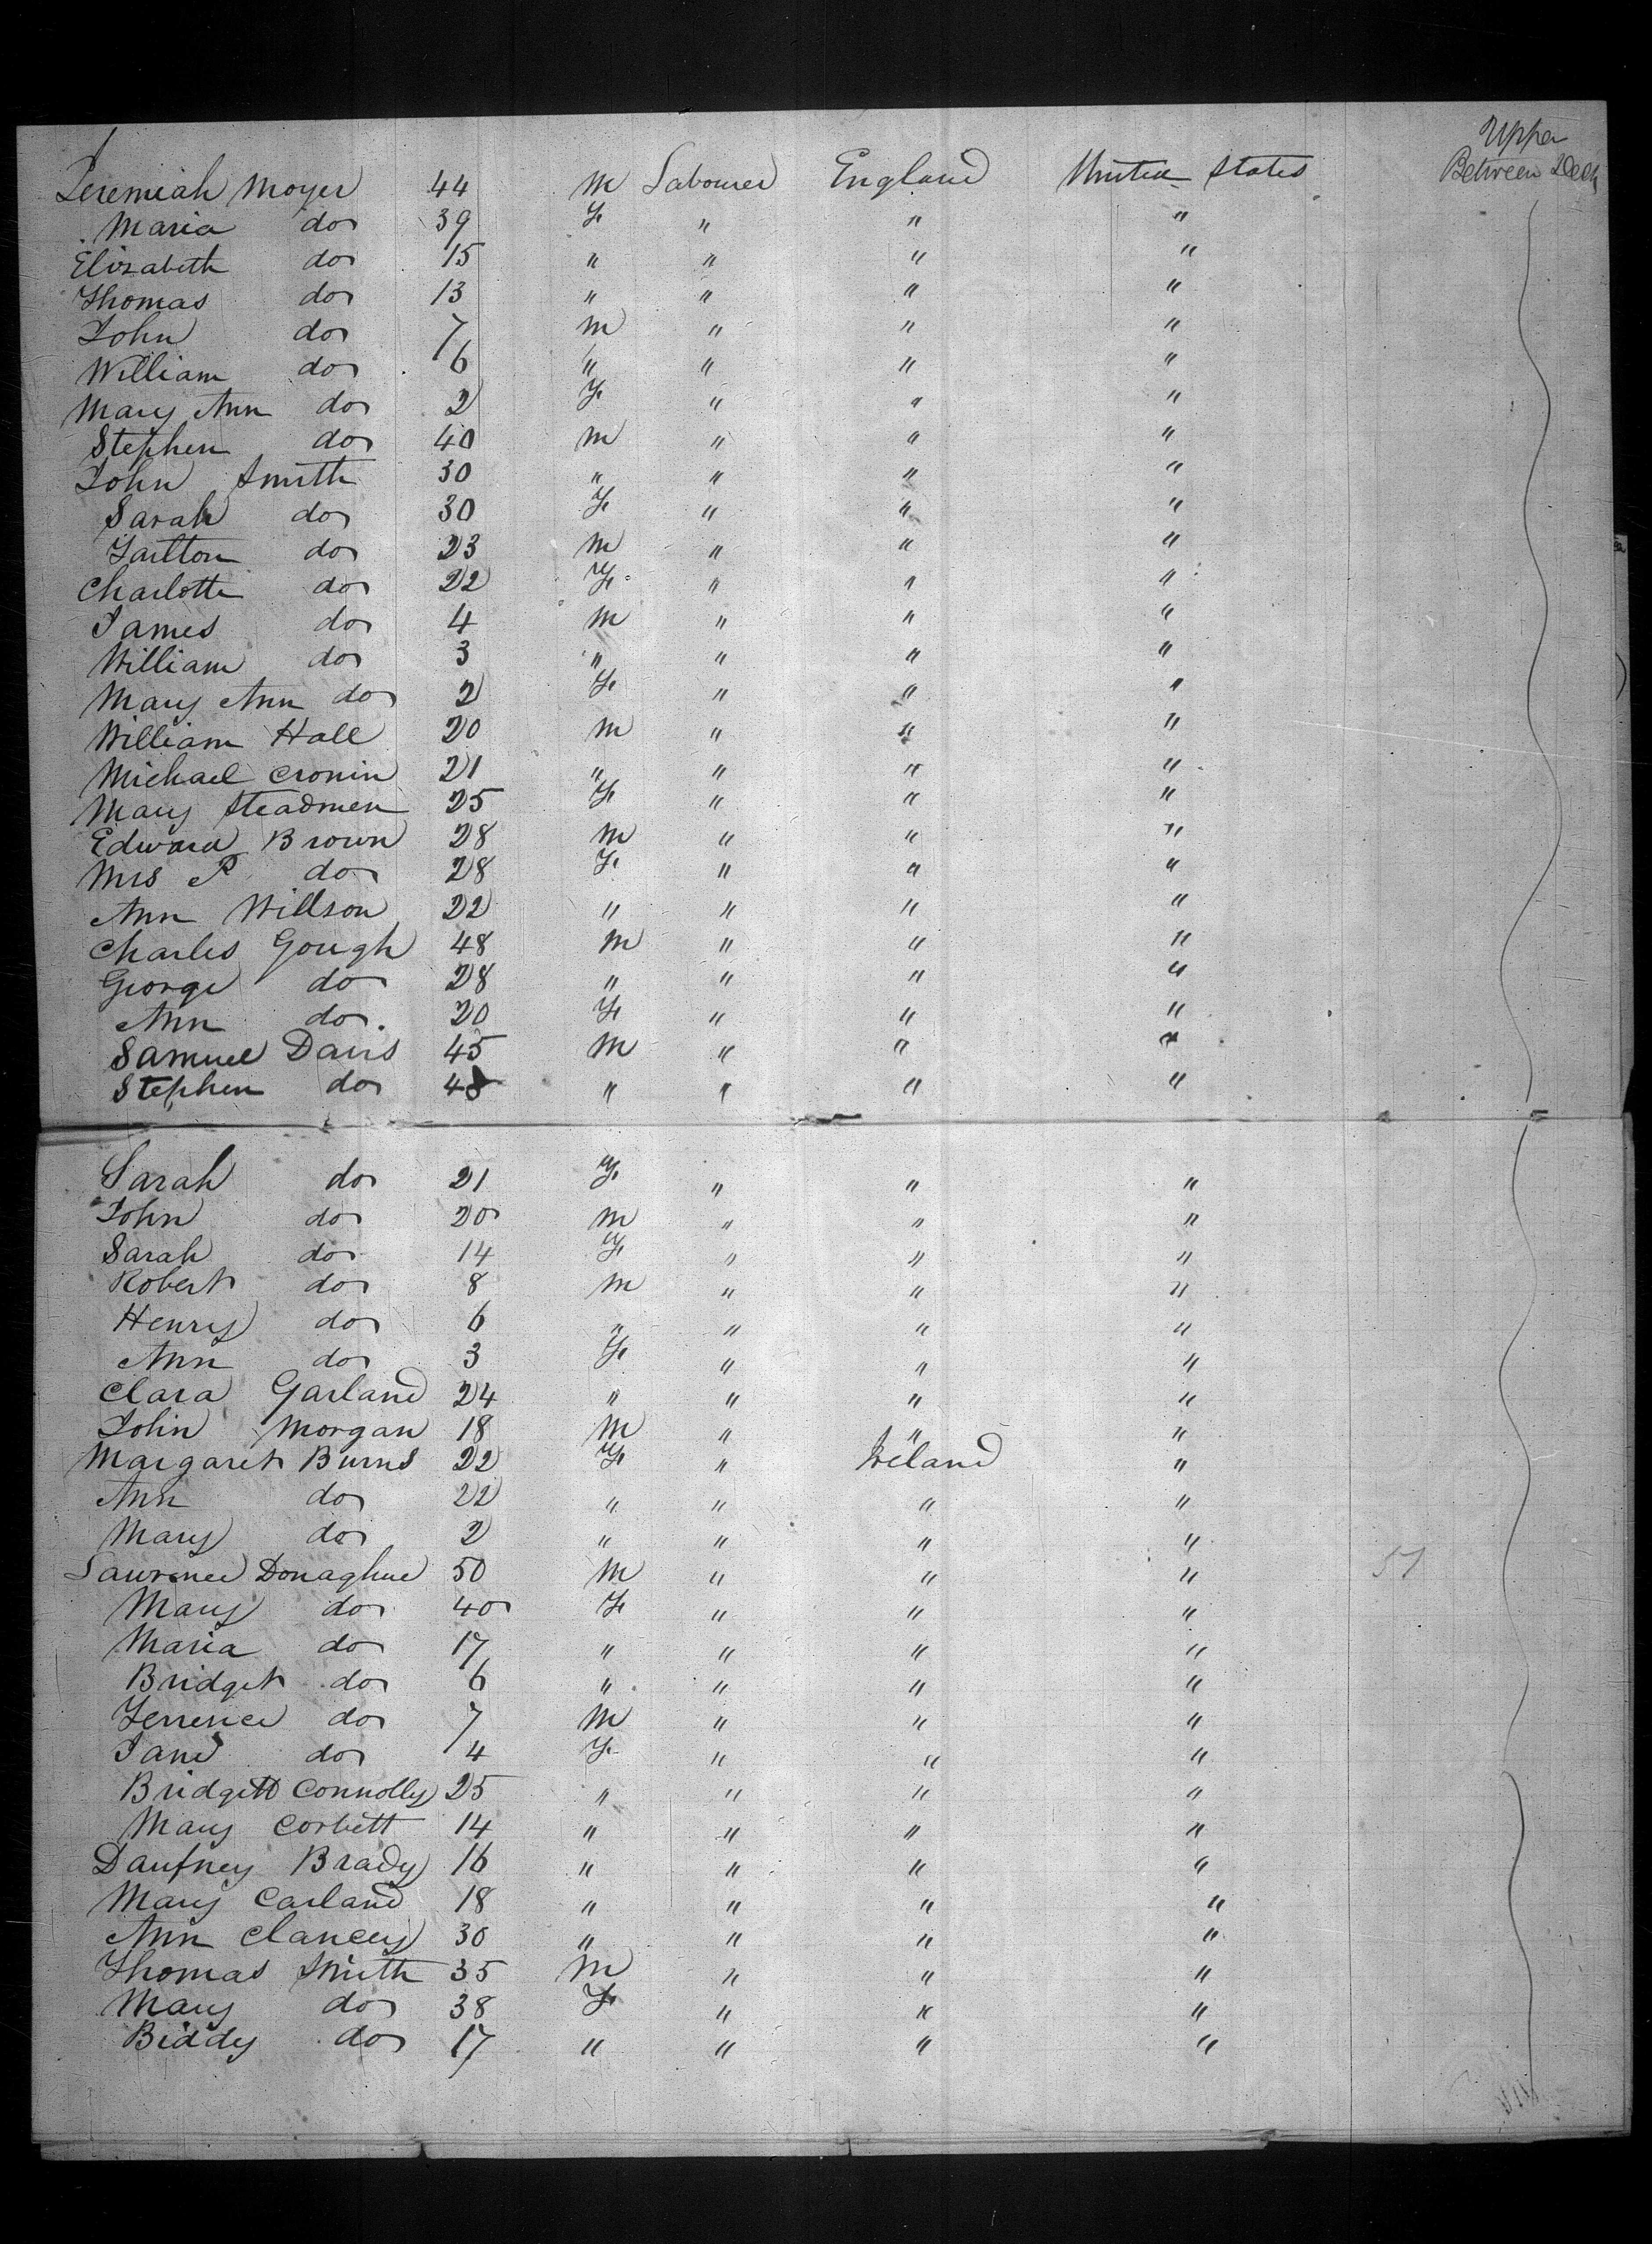 Upper
Between Deck
Jeremiah Moyer 44 M Labourer England United States
Maria do 39 F " " "
Elizabeth do 15 " " " "
Thomas do 13 " " " "
John do 7 M " " "
William do 6 " " " "
Mary Ann do 2 F " " "
Stephen do 40 M " " "
John Smith 30 " " " "
Sarah do 30 F " " "
do 23 M " " "
Charlotte do 22 F " " "
James do 4 M " " "
William do 3 " " " "
Mary Ann do 2 F " " "
William Hall 20 M " " "
Michael Cronin 21 " " " "
Mary Steadmen 25 F " " "
Edward Brown 28 M " " "
Mrs P do 28 F " " "
Ann Willson 22 " " " "
Charles Gough 48 M " " "
George do 28 " " " "
Ann do. 20 F " " "
Samuel Davis 45 M " " "
Stephen do 48 " " " "
Sarah do 21 F " " "
John do 20 M " " "
Sarah do 14 F " " "
Robert do 8 M " " "
Henry do 6 " " " "
Ann do 3 F " " "
Clara Garland 24 " " " "
John Morgan 18 M " " "
Margaret Burns 22 F " Ireland "
Ann do 22 " " " "
Mary do 2 " " " "
Lawrence Donaghue 50 M " " " 51
Mary do 40 F " " "
Maria do 17 " " " "
Bridget do 6 " " " "
Terrence do 7 M " " "
Jane do 4 F " " "
Bridgett Connolly 25 " " " "
Mary Corbett 14 " " " "
Daufney Brady 16 " " " "
Mary Carland 18 " " " "
Ann Clancey 30 " " " "
Thomas Smith 35 M " " "
Mary do 38 F " " "
Biddy do 17 " " " "